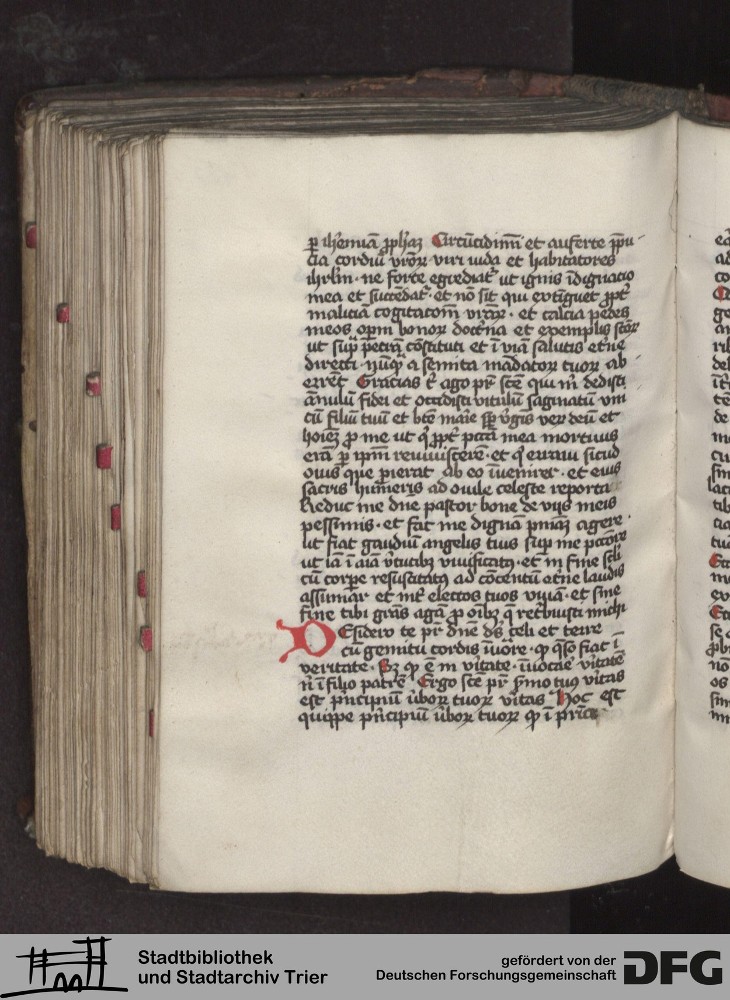 ꝑ ihemiā ꝓphaȝ Circūcidimī et auferte ꝑpu
cia cordiū vr̄oꝝ viri iuda et habitatores
ihrl̄m · ne forte egrediat᷑ ut ignis īdignatio
mea et succedat᷑ · et nō sit qui extīguet ꝓpt᷑
maliciā cogitacom̄ vr̄aꝝ · et calcia pedes
meos opm̄ bonoꝝ doctⁱna et exemplis sc̄oꝝ
ut suꝑ petrā cōstituti et ī viā salutis et̄ne
directi · nūqᷓ a semita mādatoꝝ tuoꝝ ab
errēt Gracias t᷑ ago pr̄ sc̄e qui m̄ dedisti
ānulū fidei et occidisti vitulū saginatū vni
cū filiū tuū et bt̄e maīe sꝑ v̄gīs veꝝ deū et
hoīeȝ ꝓ me ut qͥ ꝓpt᷑ pctā mea mortuus
erā ꝑ ip̄m reuiuiscerē · et qͥ erraui sicud
ouis que pierat ab eo īuenirer · et eius
sacris hūmeris ad ouile celeste reporta
Reduc me dn̄e pastor bone de vijs meis
pessimis · et fac me dignā pn̄iaȝ agere
ut fiat gaudiū angelis tuis suꝑ me pctōre
ut iā ī aīa v̄tutibꝫ viuificatꝰ · et in fine scl̄i
cū corpe resuscitatꝰ ad cōcentū et̄ne laudis
assumar et int᷑ electos tuos viuā · et sine
fine tibi grās agā ꝓ oībꝫ q̄ retbuisti michi
DEsidero te pr̄ dn̄e ds̄ celi et terre
cū gemitu cordis īuōre · qꝫ qͣso fiat ī
veritate · Sꝫ qꝫ ē in v̄itate · īuocāe v̄itatē
n̄ ī filio patrē Ergo sc̄e pr̄ ẜmo tuꝰ v̄itas
est pⁱncipiū v̄boꝝ tuoꝝ v̄itas Hoc est
quippe pⁱncipiū v̄boꝝ tuoꝝ qꝫ ī pⁱnci
Stadtbibliothek
und Stadtarchiv Trier
gefördert von der
Deutschen Forschungsgemeinschaft
DFG